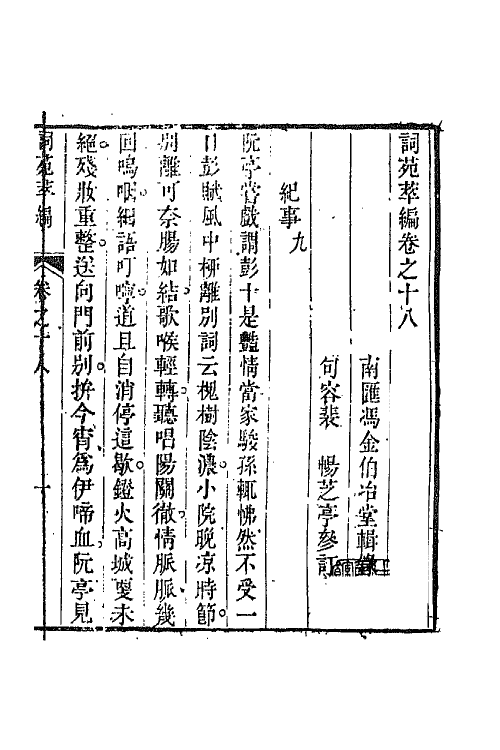 詞苑萃編卷之十八
南匯馮金伯冶堂輯
句容裴 暢芝亭參訂
紀事九
阮亭嘗戲謂彭十是豔情當家駿孫輒怫然不受一
日彭賦風中柳離別詞云槐樹陰濃。小院晚凉時節。
別離可奈腸如結。歌喉輕轉。聽唱陽關徹。情脈脈幾
回嗚咽。細語叮嚀。道且自消停這歇。鐙火高城更未
絕。殘妝重整。送向門前別。拚今宵爲伊啼血。阮亭見
詞苑萃編
卷之十八
一